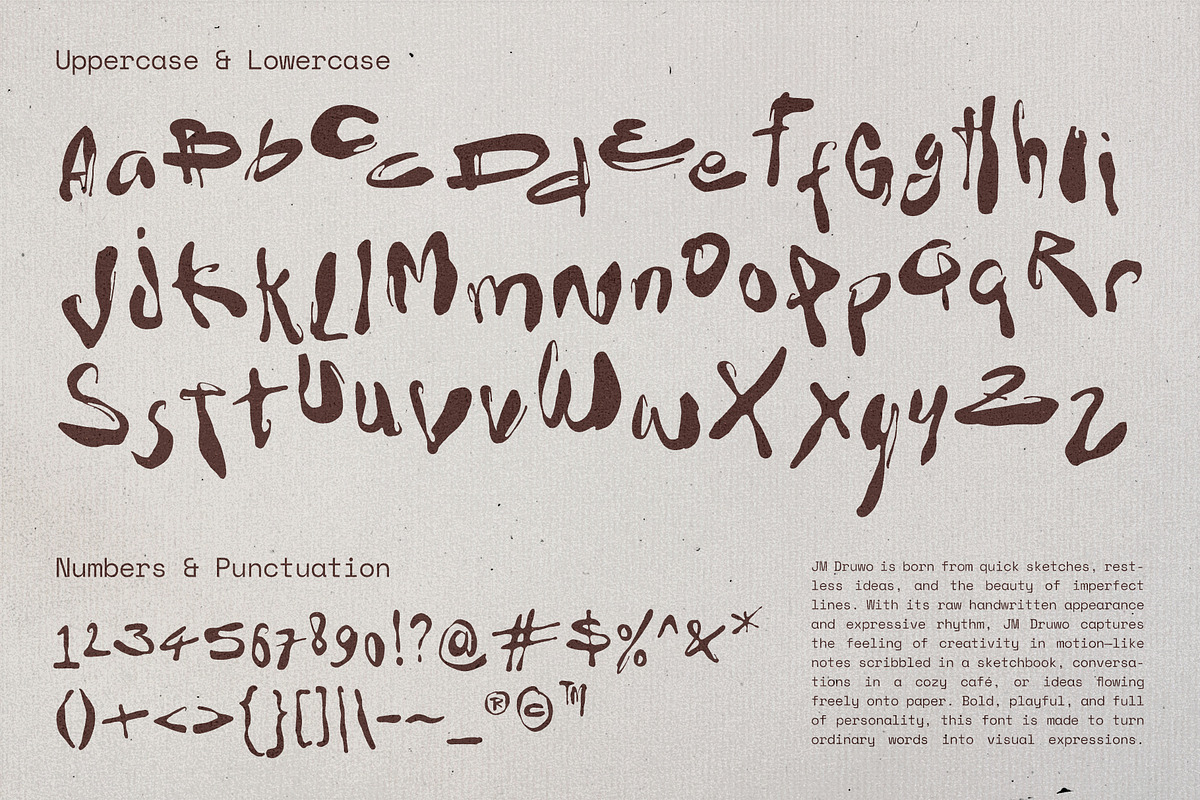 Uppercase & Lowercase
AaBbCcDdEeFfGgHhIi
JjKkLlMmNnOoPpQqRr
SsTtUuVvWwXxYyZz
Numbers & Punctuation
1234567890!?@#$%^&*
()+<>{}[]|\-~_®©™
JM Druwo is born from quick sketches, rest-
less ideas, and the beauty of imperfect
lines. With its raw handwritten appearance
and expressive rhythm, JM Druwo captures
the feeling of creativity in motion—like
notes scribbled in a sketchbook, conversa-
tions in a cozy café, or ideas flowing
freely onto paper. Bold, playful, and full
of personality, this font is made to turn
ordinary words into visual expressions.